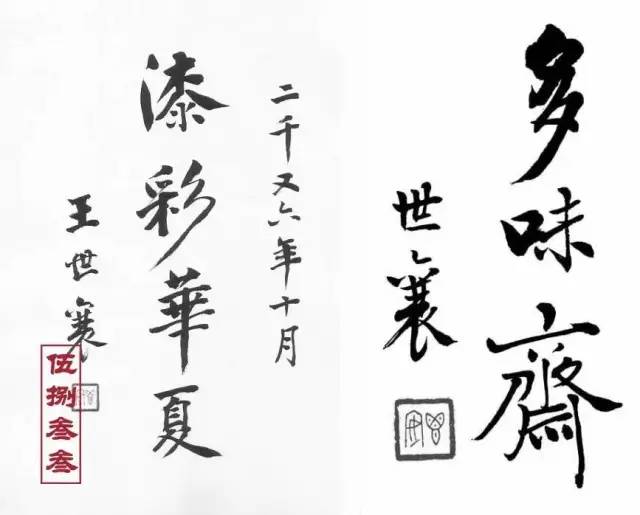 二千又六年十月
漆彩華夏
王世襄
伍捌叁叁
多味齋
世襄